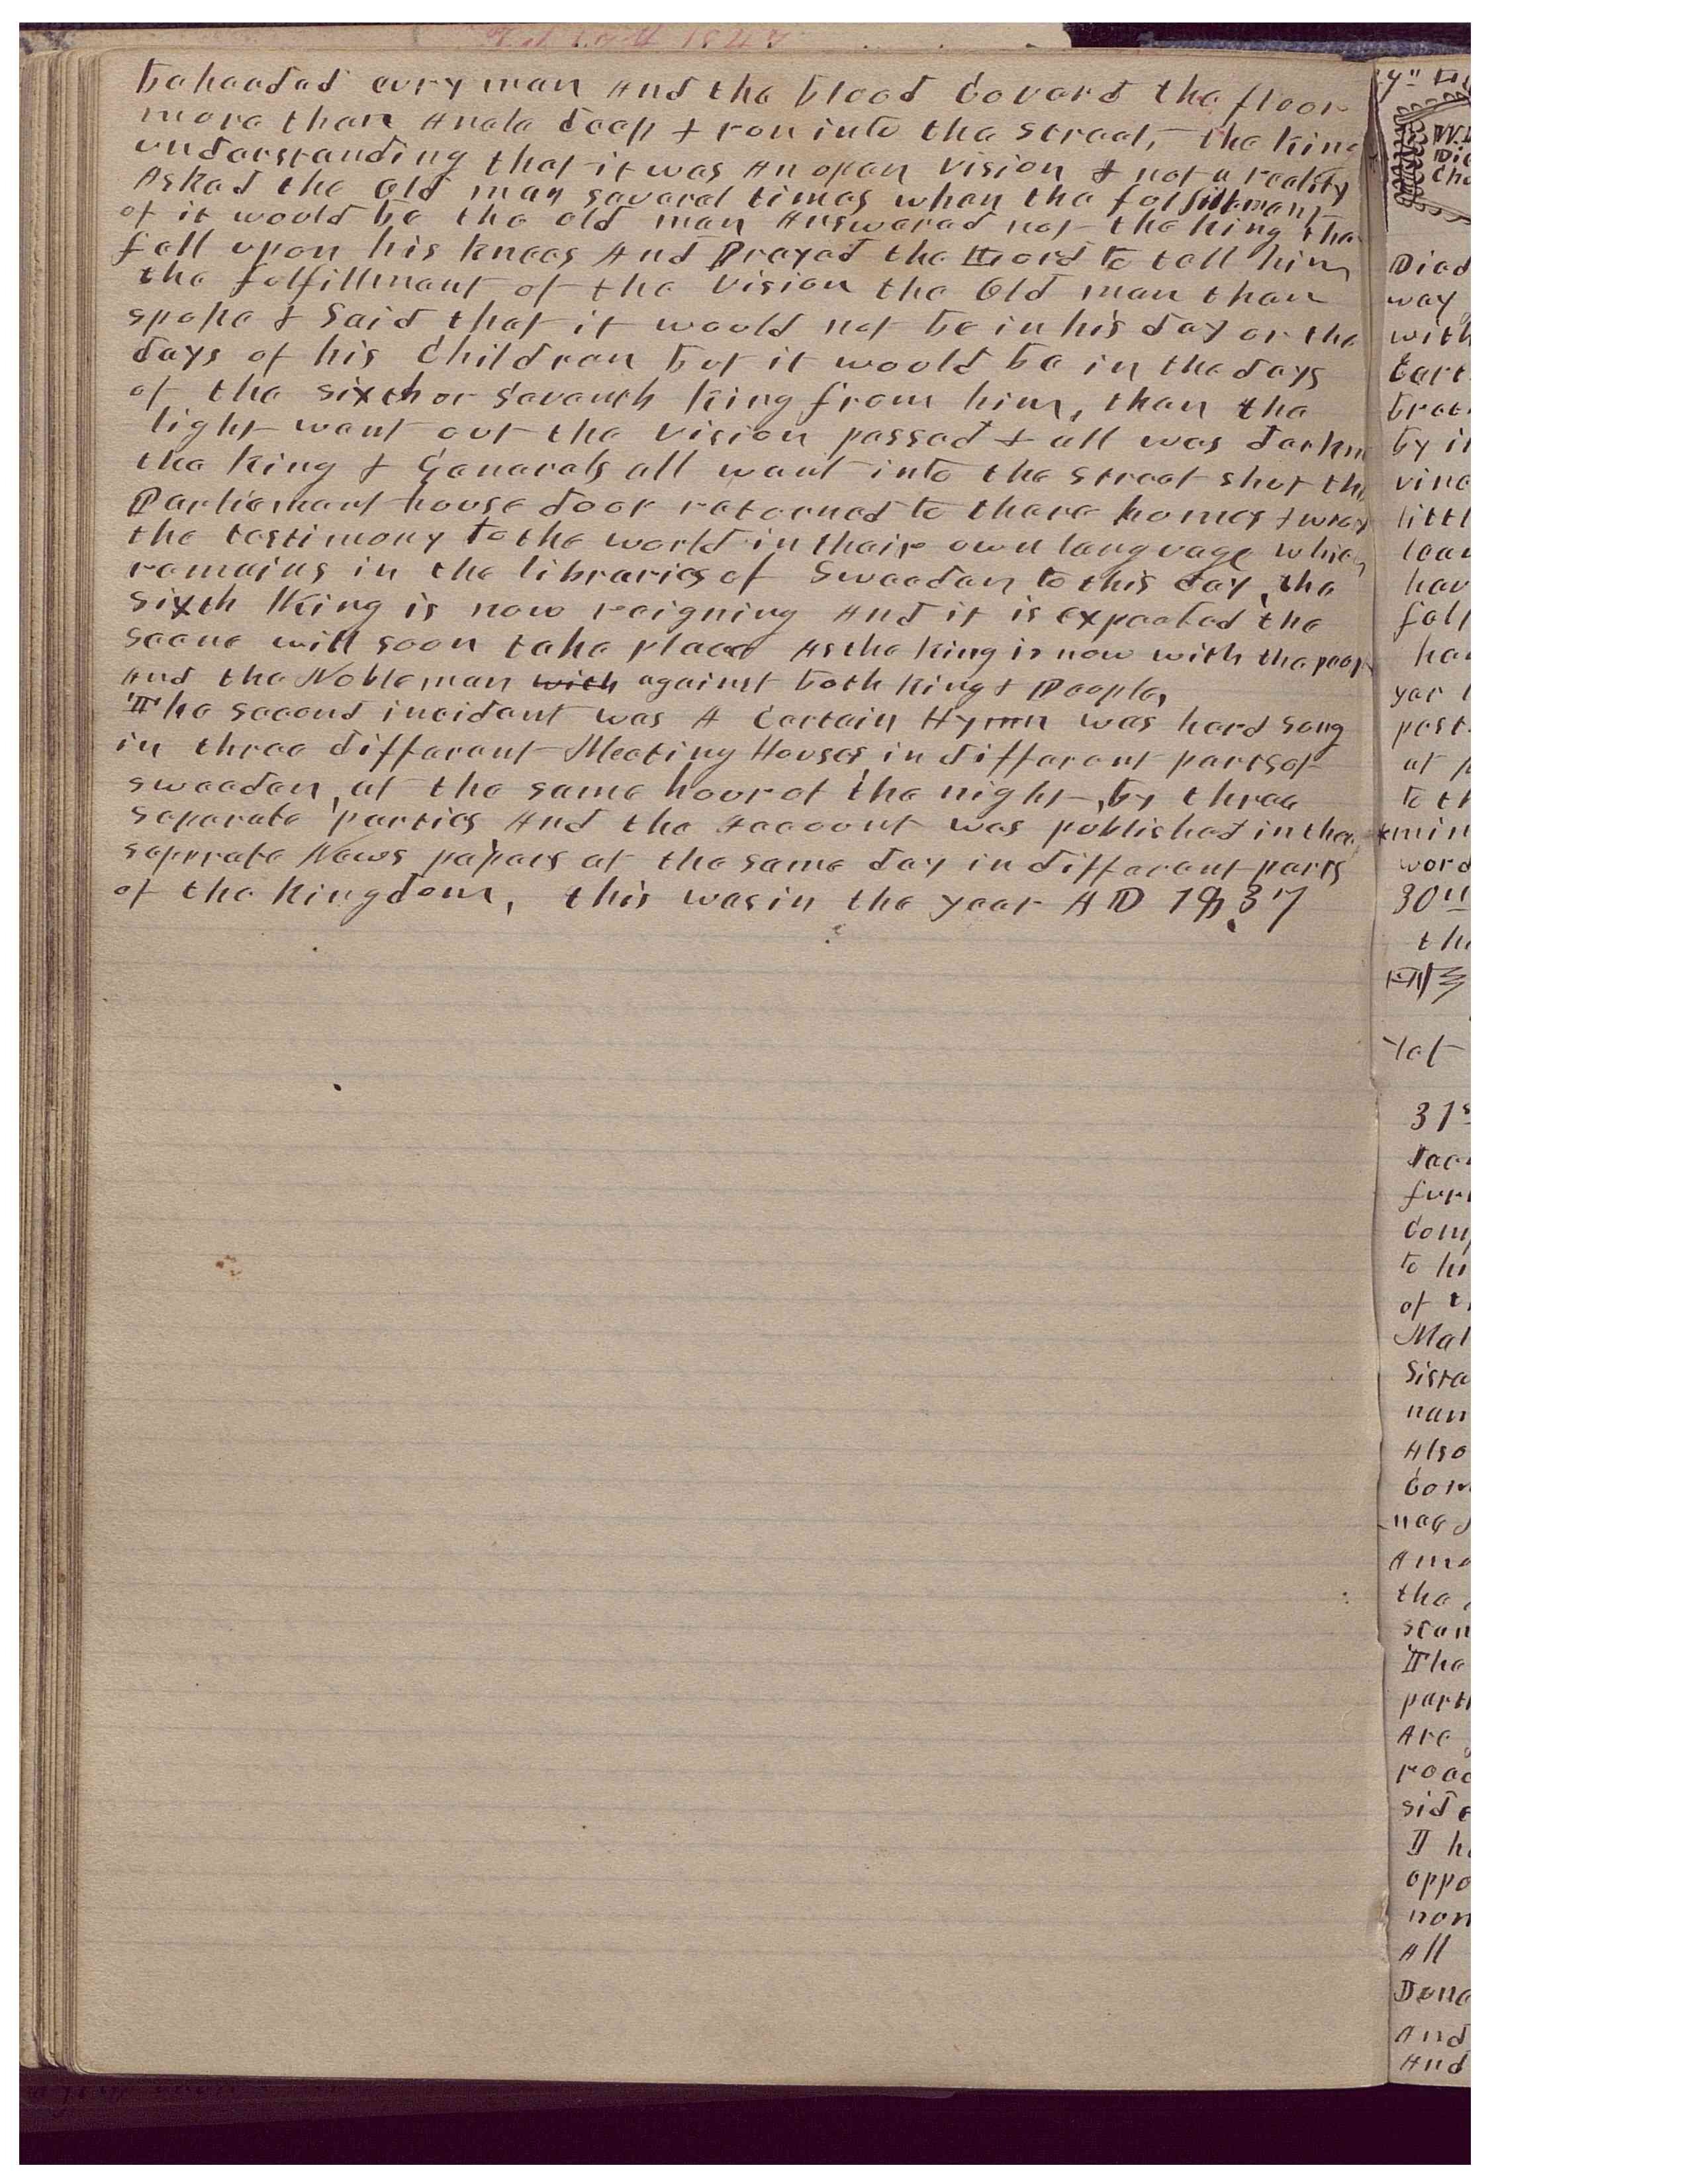 beheaded evry man And the blood Coverd the floor
more than Ancle deep & ron into the Street, the king
understanding that it was An open vision & not a reality
Asked the old man several times when the folfillment
of it would be the old man Answered not the king the
fell upon his knees And Prayed the Lord to tell him
the folfillment of the vision the Old man then
spoke & Said that it would not be in his day or the
days of his Children but it would be in the days
of the sixth or Seventh King from him, then the
light went out the vision passed & all was darkn
the King & Generals all went into the Street shut the
Parliement house door returned to there homes &
the testimony to the world in their own language which
remains in the libraries of Sweeden to this day, the
Sixth King is now reigning And it is expected the
Scene will soon take place As the King is now with the peop
And the Nobleman with against both King & People,
The second incident was A Certain Hymn was herd song
in three different Meeting Houses, in different parts of
sweeden, at the same hour of the night, by three
separate parties And the Account was published in the
seprate News papers at the same day in different parts
of the Kingdom, this was in the year A D 1837
Died
way
with
by i
littl
hav
word
30"
th
31s
to hi
of
Also
the
The
part
Are
side
oppo
All
And
And